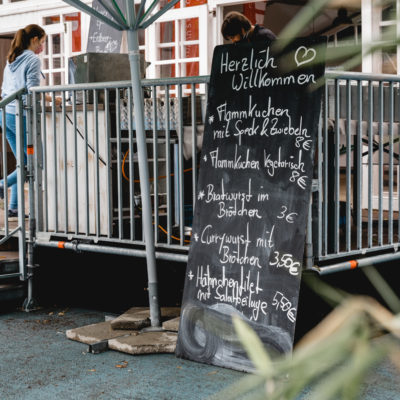 Herzlich
Willkommen
* Flammkuchen
mit Speck & Zwiebeln
8€
* Flammkuchen Vegetarisch
8€
* Bratwurst im
Brötchen 3€
* Currywurst mit
Brötchen 3,50€
* Hähnchenfilet
mit Salatbeilage 5,50€